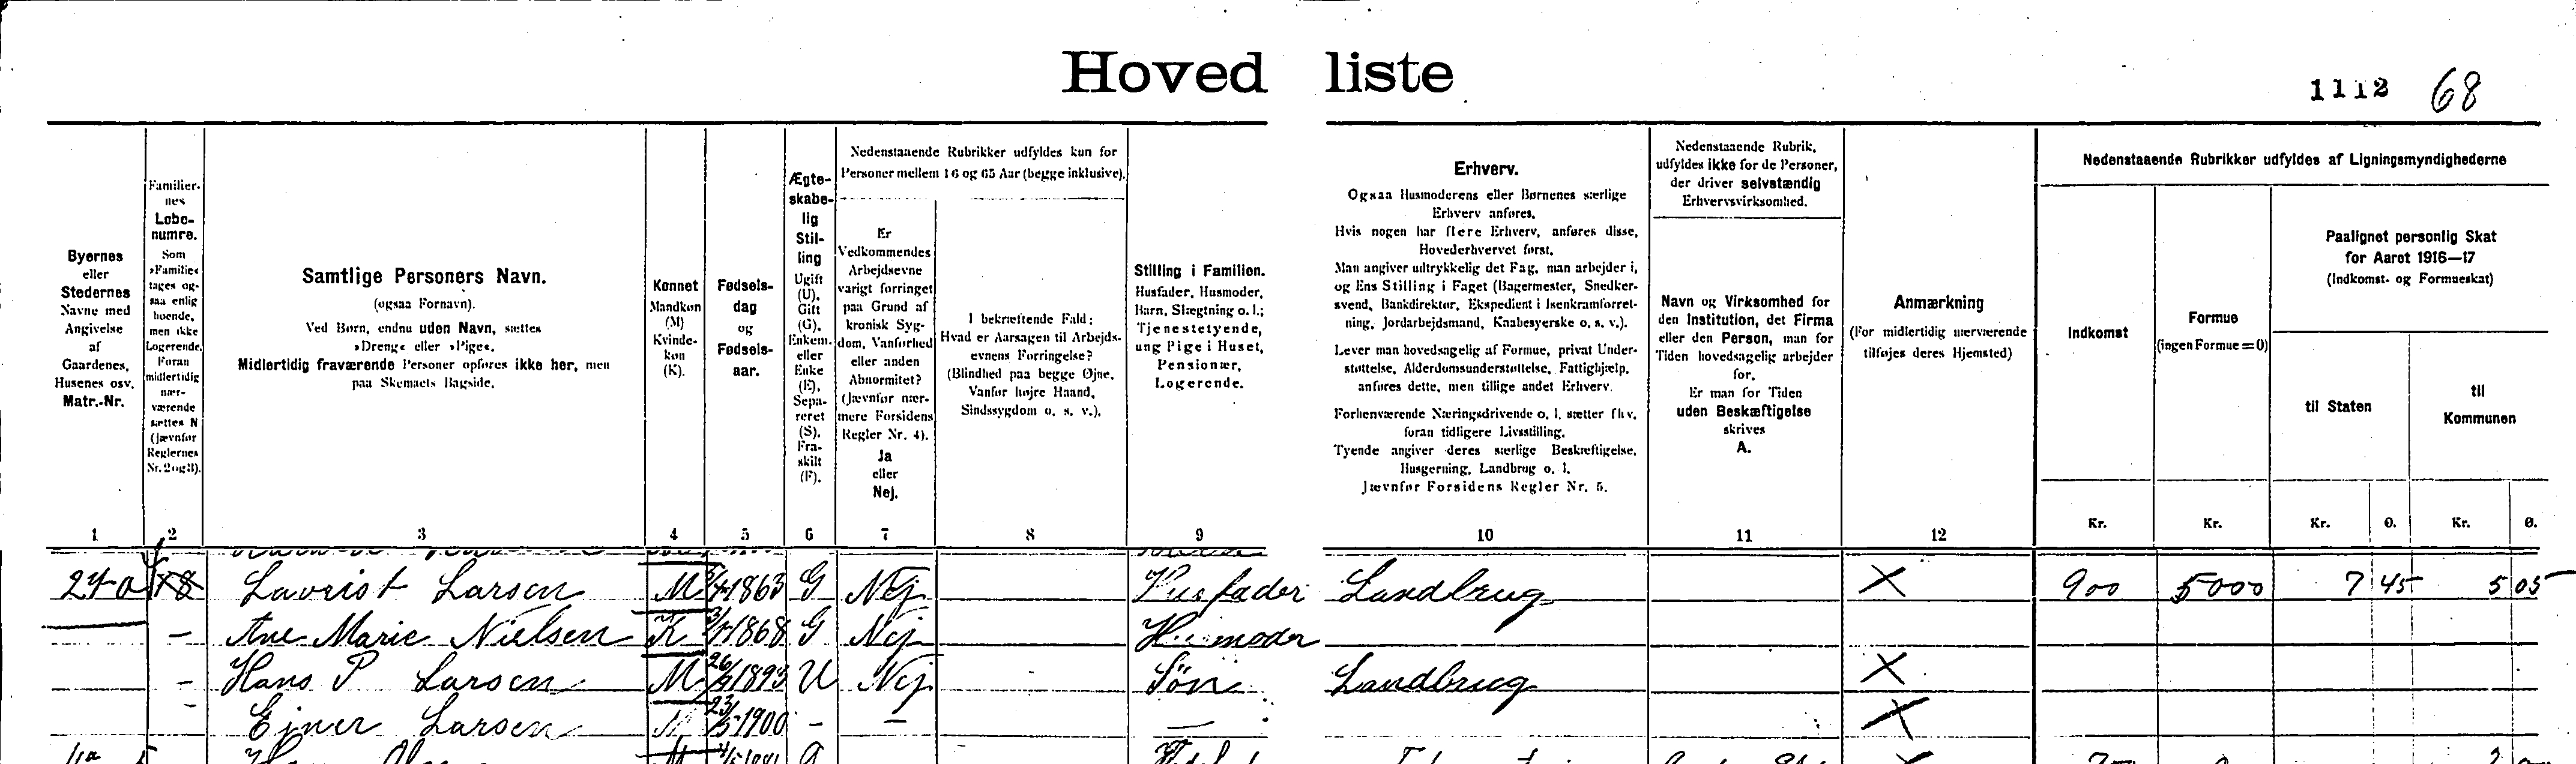 Hovedliste
1112 68
Byernes
eller
Stedernes
Navne med
Angivelse
af
Gaardenes,
Husenes osv.
Matr.-Nr.
Familier-
nes
Løbe-
numre.
Som
»Familie«
tages og-
saa enlig
boende,
men ikke
Logerende.
Foran
midlertidig
nær-
værende
sættes N
(jævnfør
Reglernes
Nr. 2 og 3).
Samtlige Personers Navn.
(ogsaa Fornavn).
Ved Børn, endnu uden Navn, sættes
»Dreng« eller »Pige«.
Midlertidig fraværende Personer opføres ikke her, men
paa Skemaets Bagside.
Kønnet
Mandkøn
(M)
Kvinde-
køn
(K).
Fødsels-
dag
og
Fødsels-
aar.
Ægte-
skabe-
lig
Stil-
ling
Ugift
(U).
Gift
(G).
Enkem.
eller
Enke
(E).
Sepa-
reret
(S).
Fra-
skilt
(F).
Nedenstaaende Rubrikker udfyldes kun for
Personer mellem 16 og 65 Aar (begge inklusive).
Er
Vedkommendes
Arbejdsevne
varigt forringet
paa Grund af
kronisk Syg-
dom, Vanførhed
eller anden
Abnormitet?
(Jævnfør nær-
mere Forsidens
Regler Nr. 4).
Ja
eller
Nej.
I bekræftende Fald:
Hvad er Aarsagen til Arbejds-
evnens Forringelse?
(Blindhed paa begge Øjne,
Vanfør højre Haand,
Sindssygdom o. s. v.).
Stilling i Familien.
Husfader, Husmoder,
Barn, Slægtning o. l.;
Tjenestetyende,
ung Pige i Huset,
Pensionær,
Logerende.
Erhverv.
Ogsaa Husmoderens eller Børnenes særlige
Erhverv anføres.
Hvis nogen har flere Erhverv, anføres disse,
Hovederhvervet først.
Man angiver udtrykkelig det Fag, man arbejder i,
og Ens Stilling i Faget (Bagermester, Snedker-
svend, Bankdirektør, Ekspedient i Isenkramforret-
ning, Jordarbejdsmand, Knabesyerske o. s. v.).
Lever man hovedsagelig af Formue, privat Under-
støttelse, Alderdomsunderstøttelse, Fattighjælp,
anføres dette, men tillige andet Erhverv.
Forhenværende Næringsdrivende o. l. sætter fhv.
foran tidligere Livsstilling.
Tyende angiver deres særlige Beskæftigelse,
Husgerning, Landbrug o. l.
Jævnfør Forsidens Regler Nr. 5.
Nedenstaaende Rubrik,
udfyldes ikke for de Personer,
der driver selvstændig
Erhvervsvirksomhed.
Navn og Virksomhed for
den Institution, det Firma
eller den Person, man for
Tiden hovedsagelig arbejder
for.
Er man for Tiden
uden Beskæftigelse
skrives
A.
Anmærkning
(For midlertidig nærværende
tilføjes deres Hjemsted)
Nedenstaaende Rubrikker udfyldes af Ligningsmyndighederne
Indkomst
Formue
(ingen Formue = 0)
Paalignet personlig Skat
for Aaret 1916—17
(Indkomst- og Formueskat)
til Staten
til
Kommunen
Kr. Kr. Kr. Ø. Kr. Ø.
1 2 3 4 5 6 7 8 9 10 11 12
Lavrist Larsen M 1863 G Nej Husfader Landbrug X 900 5000 7 45 5 05
- Ane Marie Nielsen K 1868 G Nej Husmoder
- Hans P Larsen M 1893 U Nej Søn Landbrug X
- Ejner Larsen M 23/5 1900 - - - X